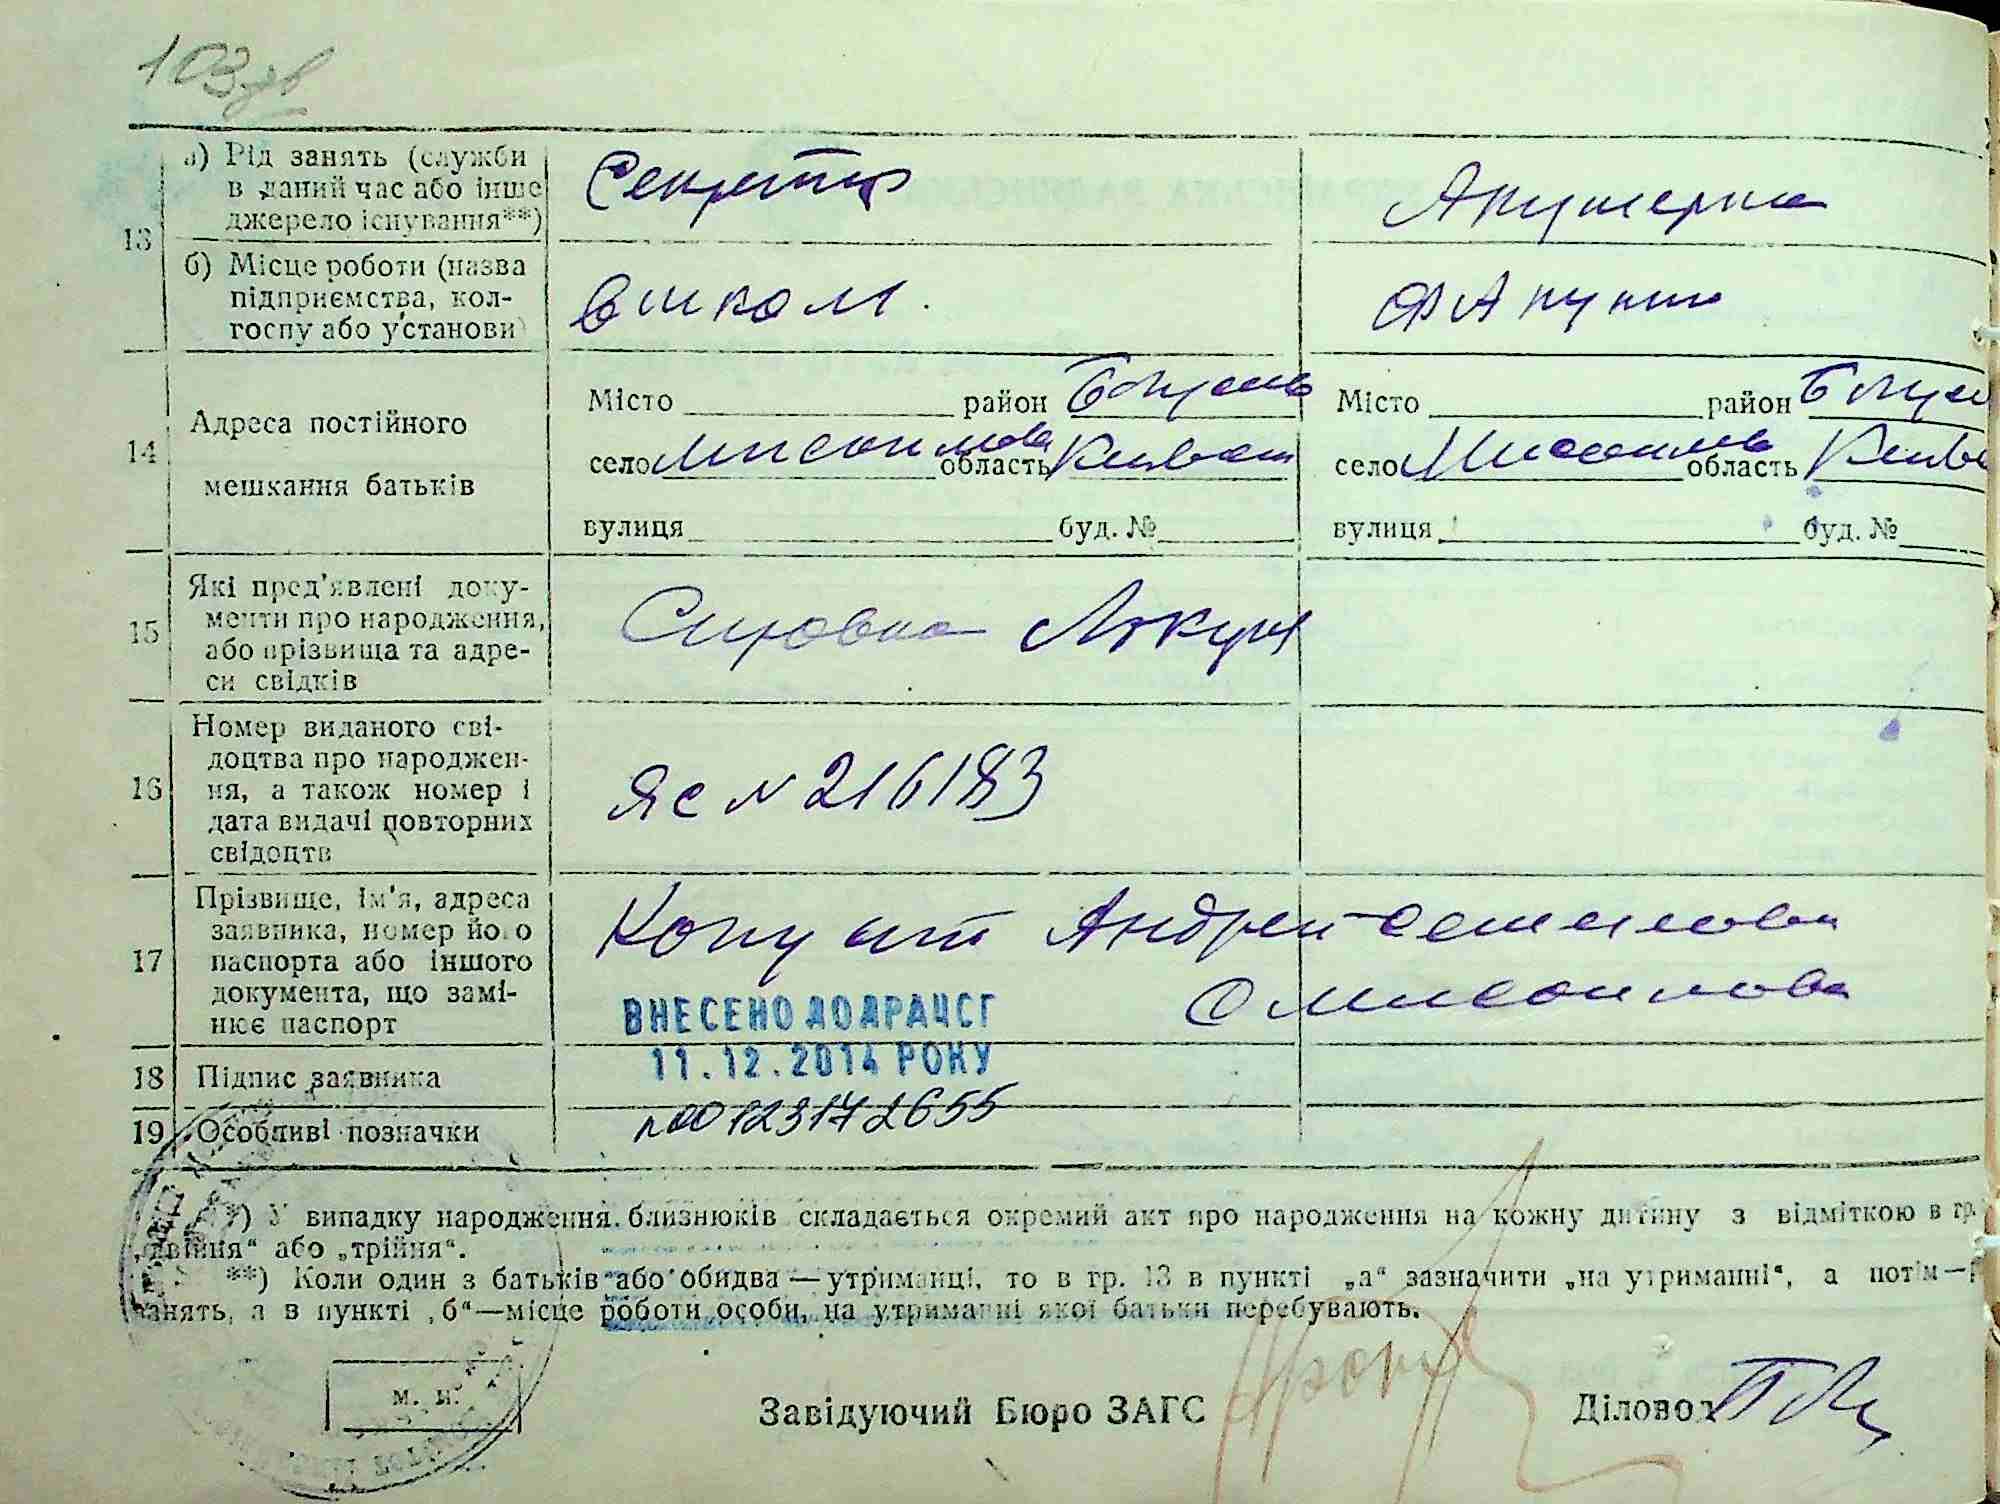 103зв
13
а) Рід занять (служби
в даний час або інше
джерело існування**)
Секретар
Акушерка
б) Місце роботи (назва
підприємства, кол-
госпу або установи)
в школі.
ФАпункт
14
Адреса постійного
мешкання батьків
Місто район Богусл
село область Київськ
вулиця буд. №
Місто район Богус
село область Київс
вулиця буд. №
15
Які пред'явлені доку-
менти про народження,
або прізвища та адре-
си свідків
Справка
16
Номер виданого сві-
доцтва про народжен-
ня, а також номер і
дата видачі повторних
свідоцтв
ЯС № 216183
17
Прізвище, ім'я, адреса
заявника, номер його
паспорта або іншого
документа, що замі-
нює паспорт
Андрей
с
ВНЕСЕНО ДО ДРАЦСГ
11.12.2014 РОКУ
18 Підпис заявника
19 Особливі позначки
00123172655
*) У випадку народження близнюків складається окремий акт про народження на кожну дитину з відміткою в гр.
„двійня“ або „трійня“.
**) Коли один з батьків або обидва — утриманці, то в гр. 13 в пункті „а“ зазначити „на утриманні“, а потім —
занять, а в пункті „б“ — місце роботи особи, на утриманні якої батьки перебувають.
М. П.
Завідуючий Бюро ЗАГС
Діловод